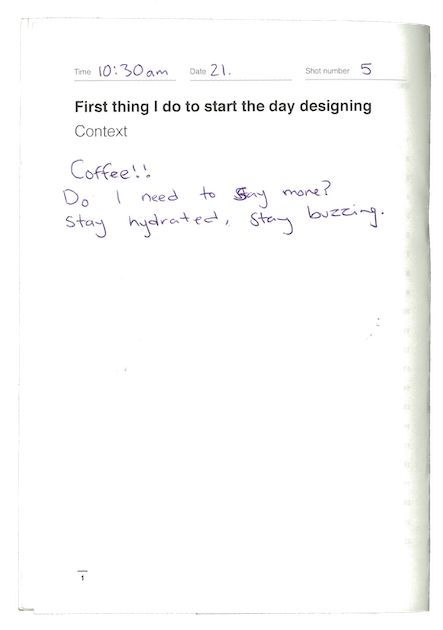 Time 10:30am Date 21. Shot number 5
First thing I do to start the day designing
Context
Coffee!!
Do I need to say more?
Stay hydrated, stay buzzing.
1